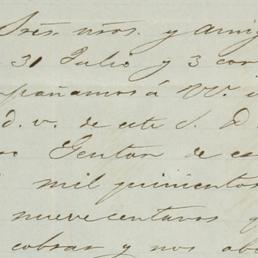 Sres. nros. y amig
31 Julio y 3 cor
pañamos á VV. 
d. v. de este S. D
Gentor de es
mil quinientos
nueve centavos q
cobrar y nos abo